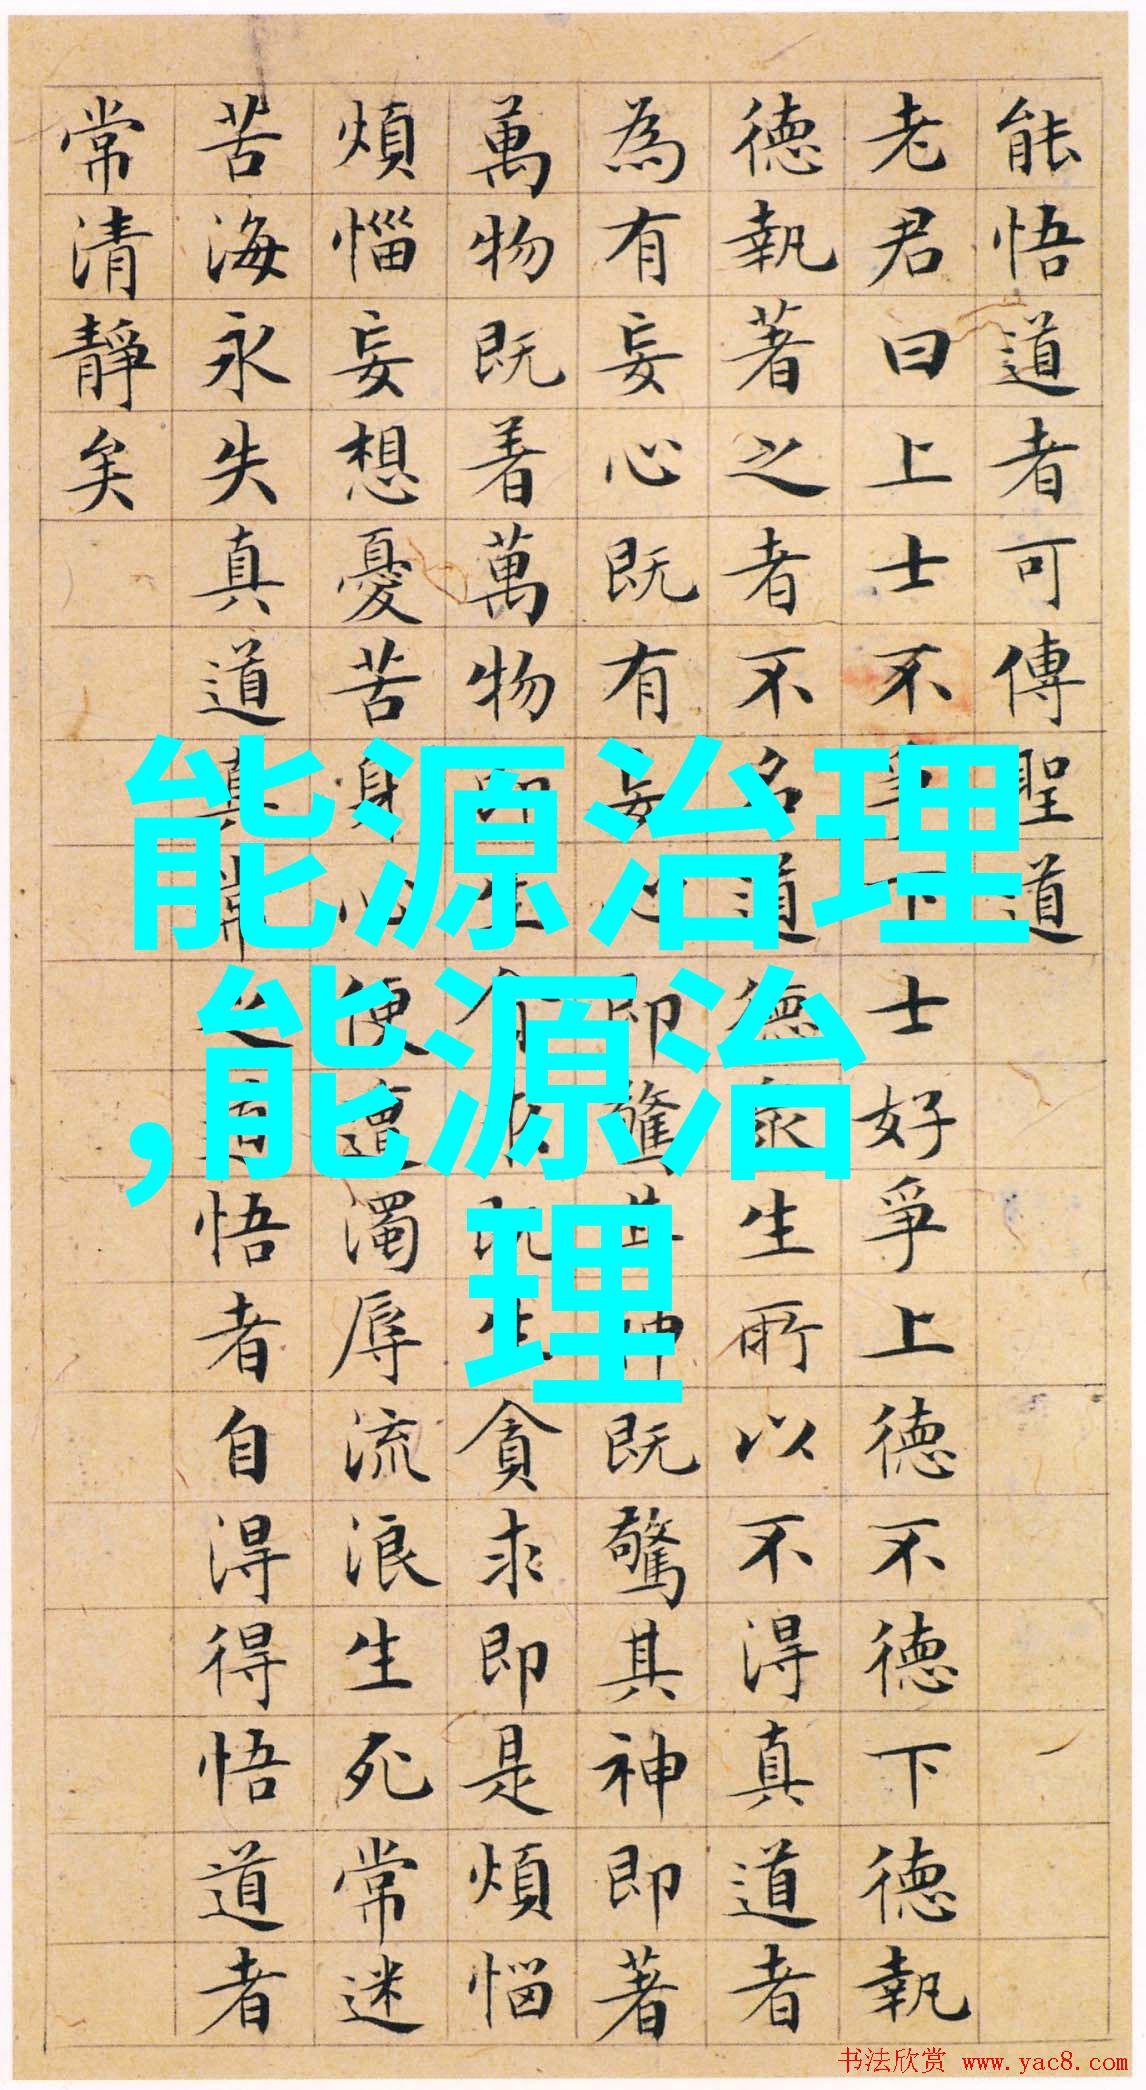 能悟道者可傳聖道
老君曰上士不爭下士好爭上德不德下德執
德執著之者不名道德眾生所以不得真道者
為有妄心既有妄心即驚其神既驚其神即著
萬物既着萬物即生貪求既生貪求即是煩惱
煩惱妄想憂苦身心便遭濁辱流浪生死常迷
苦海永失真道真常之道悟者自得得悟道者
常清靜矣
能源治理
,能源治
理
书法欣赏 www.yac8.com